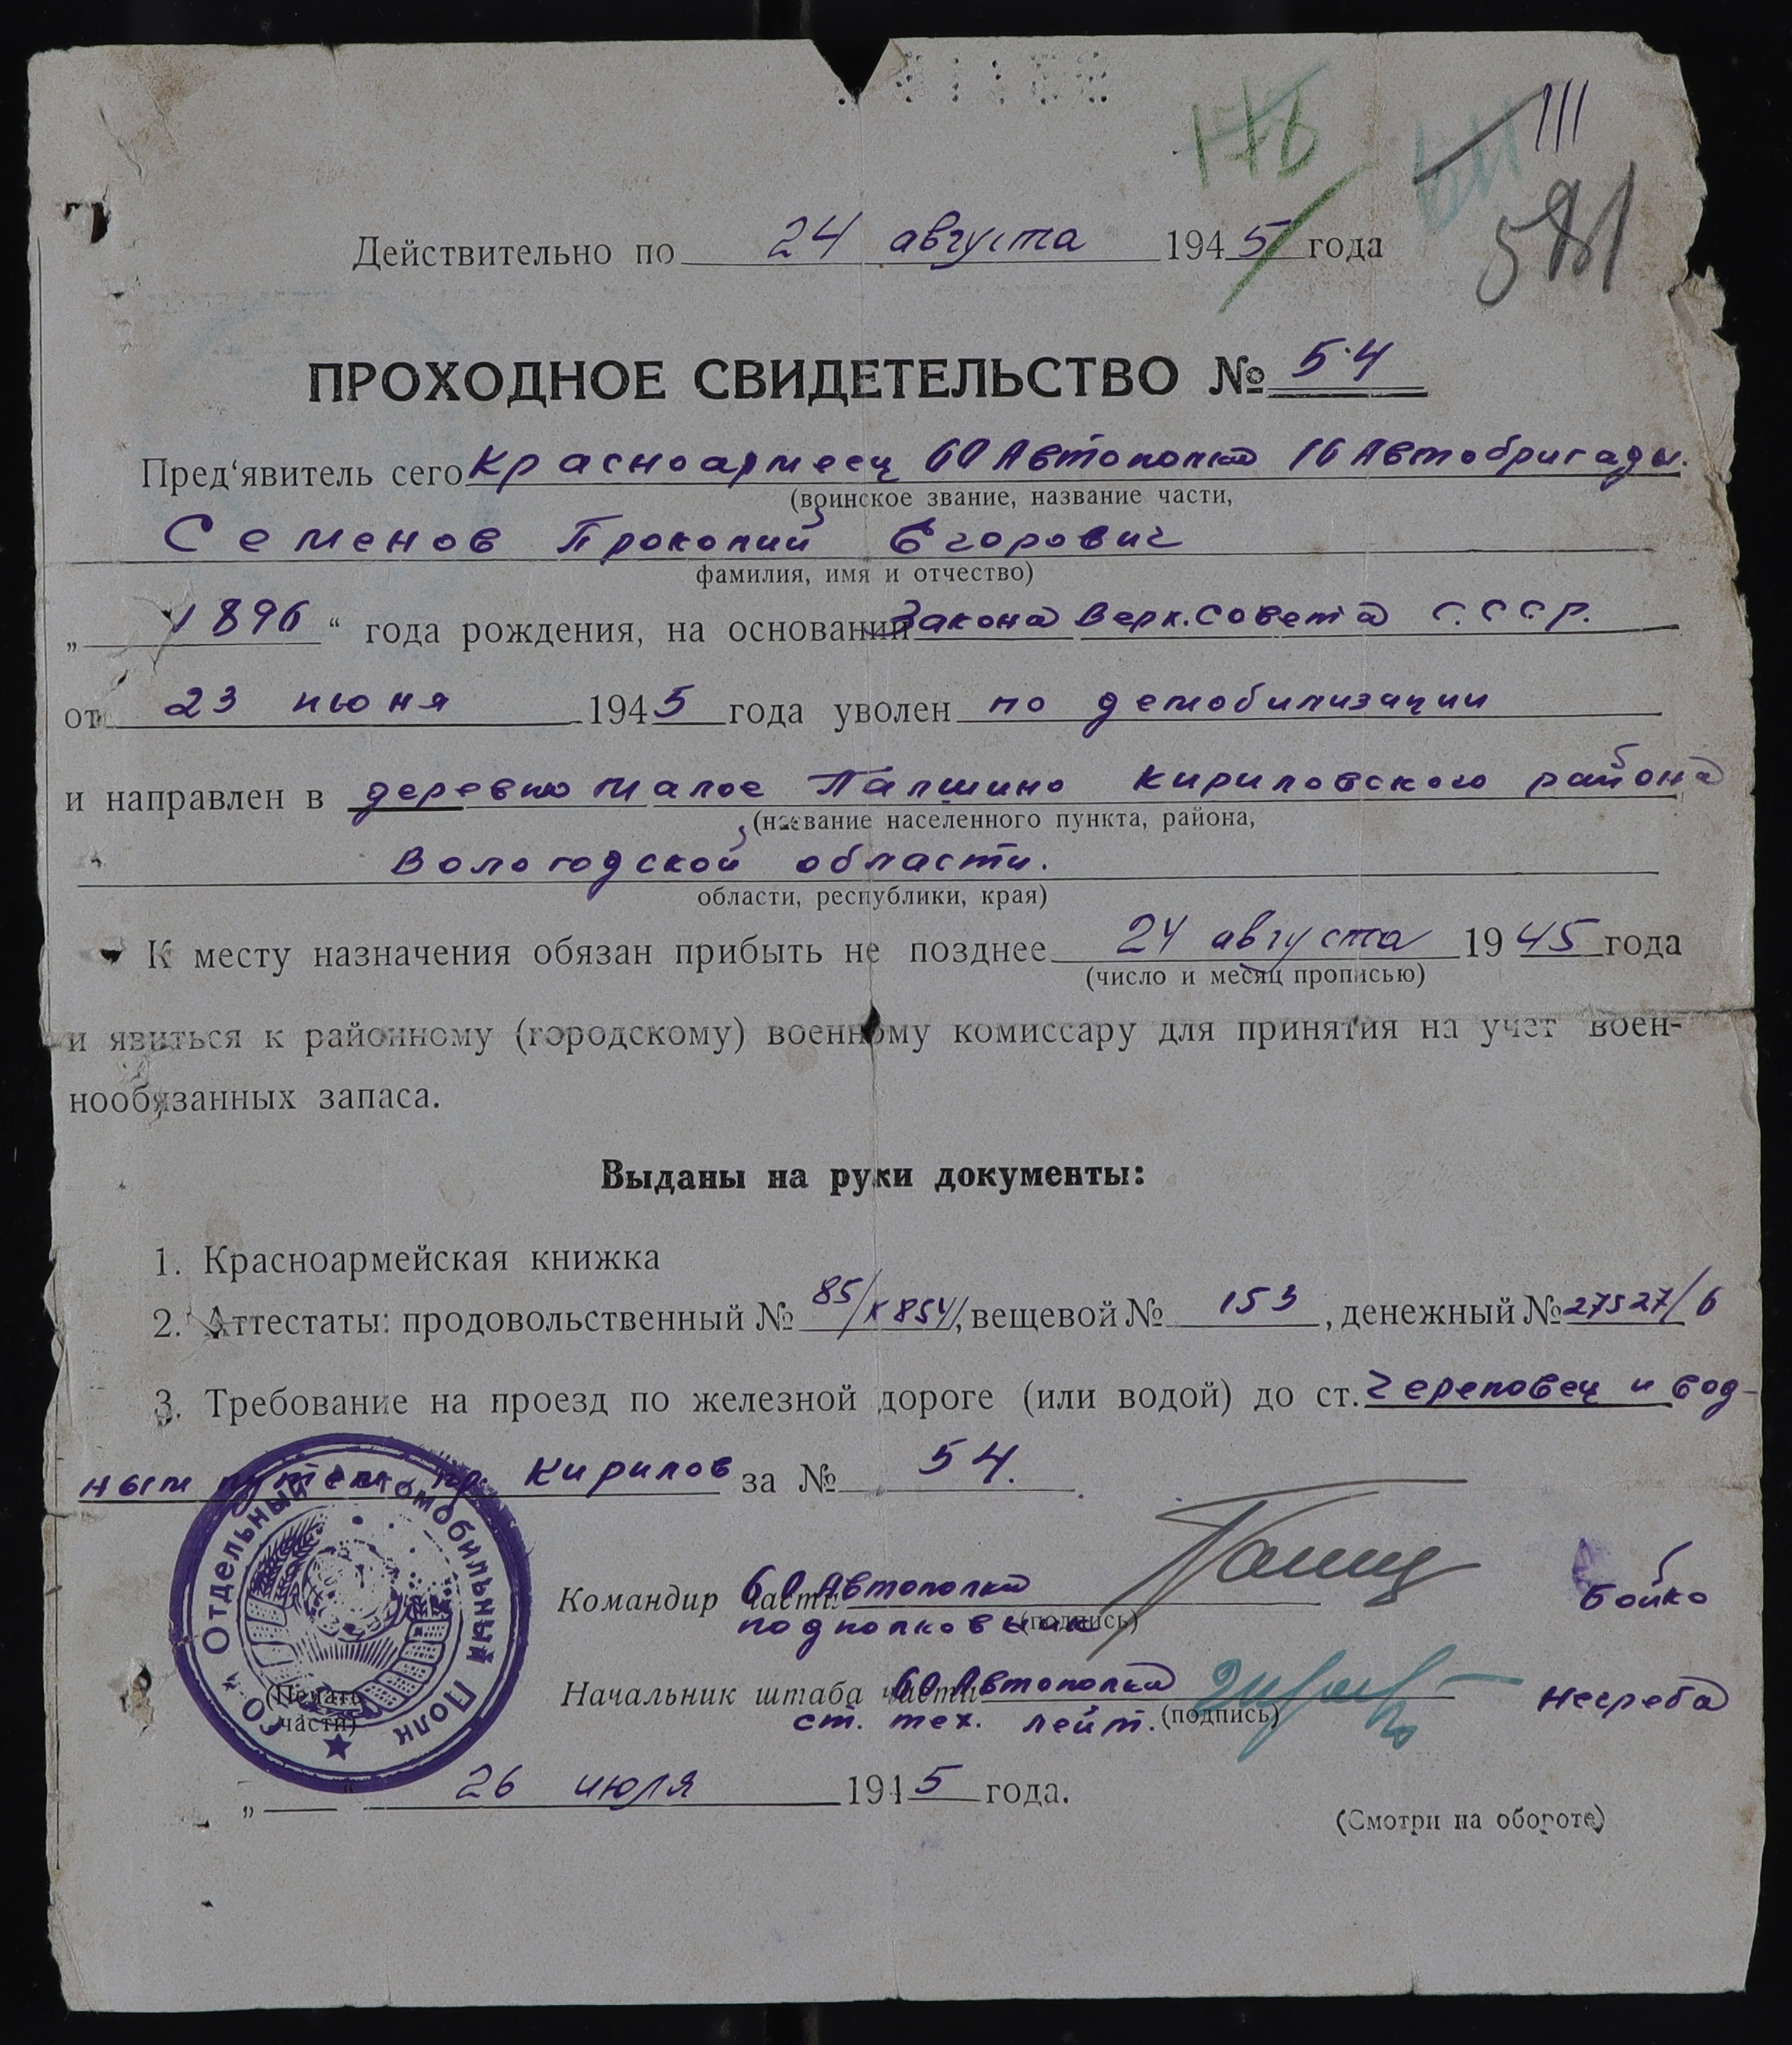 176
111
581
Действительно по 24 августа 1945 года
ПРОХОДНОЕ СВИДЕТЕЛЬСТВО № 54
Пред‘явитель сего Красноармеец 60 Автополка 16 Автобригады.
(воинское звание, название части,
Семенов Прокопий Егорович
фамилия, имя и отчество)
„ 1896 “ года рождения, на основании Закона Верх. Совета С.С.С.Р.
от 23 июня 1945 года уволен по демобилизации
и направлен в деревню Малое Палшино Кириловского района
(название населенного пункта, района,
Вологодской области.
области, республики, края)
К месту назначения обязан прибыть не позднее 24 августа 1945 года
(число и месяц прописью)
и явиться к районному (городскому) военному комиссару для принятия на учет воен-
нообязанных запаса.
Выданы на руки документы:
1. Красноармейская книжка
2. Аттестаты: продовольственный № 85/К854/, вещевой № 153, денежный № 27527/6
3. Требование на проезд по железной дороге (или водой) до ст. Череповец и вод-
ным путем пр. Кирилов за № 54.
Командир части 60 Автополка
подполковник (подпись) Бойко
Начальник штаба части 60 Автополка
ст. тех. лейт. (подпись) Негреба
60 Отдельный Автомобильный Полк
(Печать
части)
„ “ 26 июля 1945 года.
(Смотри на обороте)